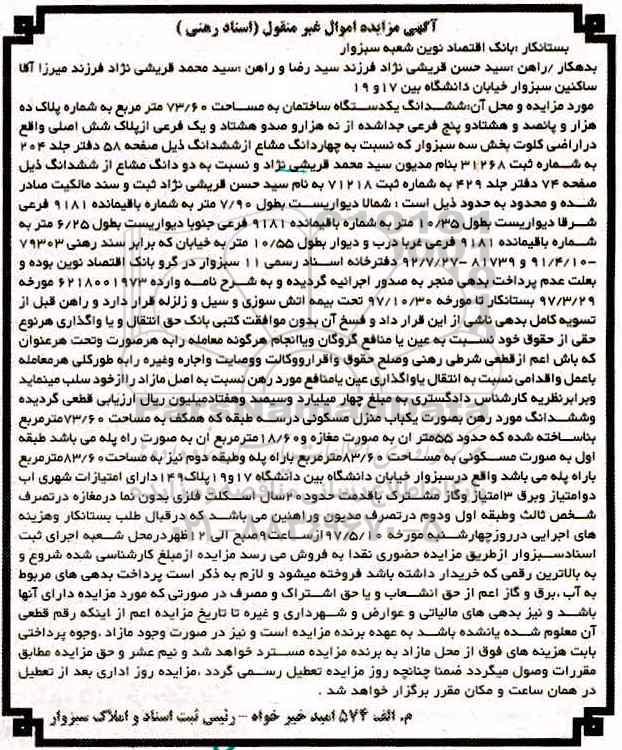 آگهی مزایده اموال غیر منقول (اسناد رهنی)
بستانکار :بانک اقتصاد نوین شعبه سبزوار
بدهکار /راهن :سید حسن قریشی نژاد فرزند سید رضا و راهن :سید محمد قریشی نژاد فرزند میرزا آقا
ساکنین سبزوار خیابان دانشگاه بین ۱۷و ۱۹
مورد مزایده و محل آن:ششدانگ یکدستگاه ساختمان به مساحت ۷۳/۶۰ متر مربع به شماره پلاک ده
هزار و پانصد و هشتادو پنج فرعی جداشده از نه هزارو صدو هشتاد و یک فرعی ازپلاک شش اصلی واقع
دراراضی کلوت بخش سه سبزوار که نسبت به چهاردانگ مشاع ازششدانگ ذیل صفحه ۵۸ دفتر جلد ۲۰۴
به شماره ثبت ۳۱۲۶۸ بنام مدیون سید محمد قریشی نژاد و نسبت به دو دانگ مشاع از ششدانگ ذیل
صفحه ۷۴ دفتر جلد ۴۲۹ به شماره ثبت ۷۱۲۱۸ به نام سید حسن قریشی نژاد ثبت و سند مالکیت صادر
شده و محدود به حدود ذیل است : شمالا دیواریست بطول ۷/۹۰ متر به شماره باقیمانده ۹۱۸۱ فرعی
شرقا دیواریست بطول ۱۰/۳۵ متر به شماره باقیمانده ۹۱۸۱ فرعی جنوبا دیواریست بطول ۶/۲۵ متر به
شماره باقیمانده ۹۱۸۱ فرعی غربا درب و دیوار بطول ۱۰/۵۵ متر به خیابان که برابر سند رهنی ۷۹۳۰۳
-۹۱/۴/۱۰ و ۸۱۷۳۹ -۹۲/۷/۲۷ دفترخانه اسناد رسمی ۱۱ سبزوار در گرو بانک اقتصاد نوین بوده و
بعلت عدم پرداخت بدهی منجر به صدور اجرائیه گردیده و به شرح نامه وارده ۶۲۱۸۰۰۱۹۷۳ مورخه
۹۷/۳/۲۹ بستانکار تا مورخه ۹۷/۱۰/۳۰ تحت بیمه اتش سوزی و سیل و زلزله قرار دارد و راهن قبل از
تسویه کامل بدهی ناشی از این قرار داد و فسخ آن بدون موافقت کتبی بانک حق انتقال و یا واگذاری هرنوع
حقی از حقوق خود نسبت به عین یا منافع گروگان ویاانجام هرگونه معامله رابه هرصورت وتحت هرعنوان
که باش اعم ازقطعی شرطی رهنی وصلح حقوق واقرارووکالت ووصایت واجاره وغیره رابه طورکلی هرمعامله
باعمل واقدامی نسبت به انتقال یاواگذاری عین یامنافع مورد رهن نسبت به اصل مازاد راازخود سلب مینماید
وبرابرنظریه کارشناس دادگستری به مبلغ چهار میلیارد وسیصد وهفتادمیلیون ریال ارزیابی قطعی گردیده
وششدانگ مورد رهن بصورت یکباب منزل مسکونی درسه طبقه که همکف به مساحت ۷۳/۶۰مترمربع
بناساخته شده که حدود ۵۵متر ان به صورت مغازه و۱۸/۶۰مترمربع ان به صورت راه پله می باشد طبقه
اول به صورت مسکونی به مساحت ۸۳/۶۰مترمربع باراه پله وطبقه دوم نیز به مساحت۸۳/۶۰مترمربع
باراه پله می باشد واقع درسبزوار خیابان دانشگاه بین دانشگاه ۱۷و۱۹پلاک۱۴۹دارای امتیازات شهری اب
دوامتیاز وبرق ۳امتیاز وگاز مشترک باقدمت حدود۲۰سال اسکلت فلزی بدون نما درمغازه درتصرف
شخص ثالث وطبقه اول ودوم درتصرف مدیون وراهنین می باشد که درقبال طلب بستانکار وهزینه
های اجرایی درروزچهارشنبه مورخه ۹۷/۵/۱۰ازساعت۹صبح الی ۱۲ظهردرمحل شعبه اجرای ثبت
اسنادسبزوار ازطریق مزایده حضوری نقدا به فروش می رسد مزایده ازمبلغ کارشناسی شده شروع و
به بالاترین رقمی که خریدار داشته باشد فروخته میشود و لازم به ذکر است پرداخت بدهی های مربوط
به آب ،برق و گاز اعم از حق انشعاب و یا حق اشتراک و مصرف در صورتی که مورد مزایده دارای آنها
باشد و نیز بدهی های مالیاتی و عوارض و شهرداری و غیره تا تاریخ مزایده اعم از اینکه رقم قطعی
آن معلوم شده یانشده باشد به عهده برنده مزایده است و نیز در صورت وجود مازاد ،وجوه پرداختی
بابت هزینه های فوق از محل مازاد به برنده مزایده مسترد خواهد شد و نیم عشر و حق مزایده مطابق
مقررات وصول میگردد ضمنا چنانچه روز مزایده تعطیل رسمی گردد ،مزایده روز اداری بعد از تعطیل
در همان ساعت و مکان مقرر برگزار خواهد شد .
م. الف ۵۷۴ امید خیر خواه – رئیس ثبت اسناد و املاک سبزوار